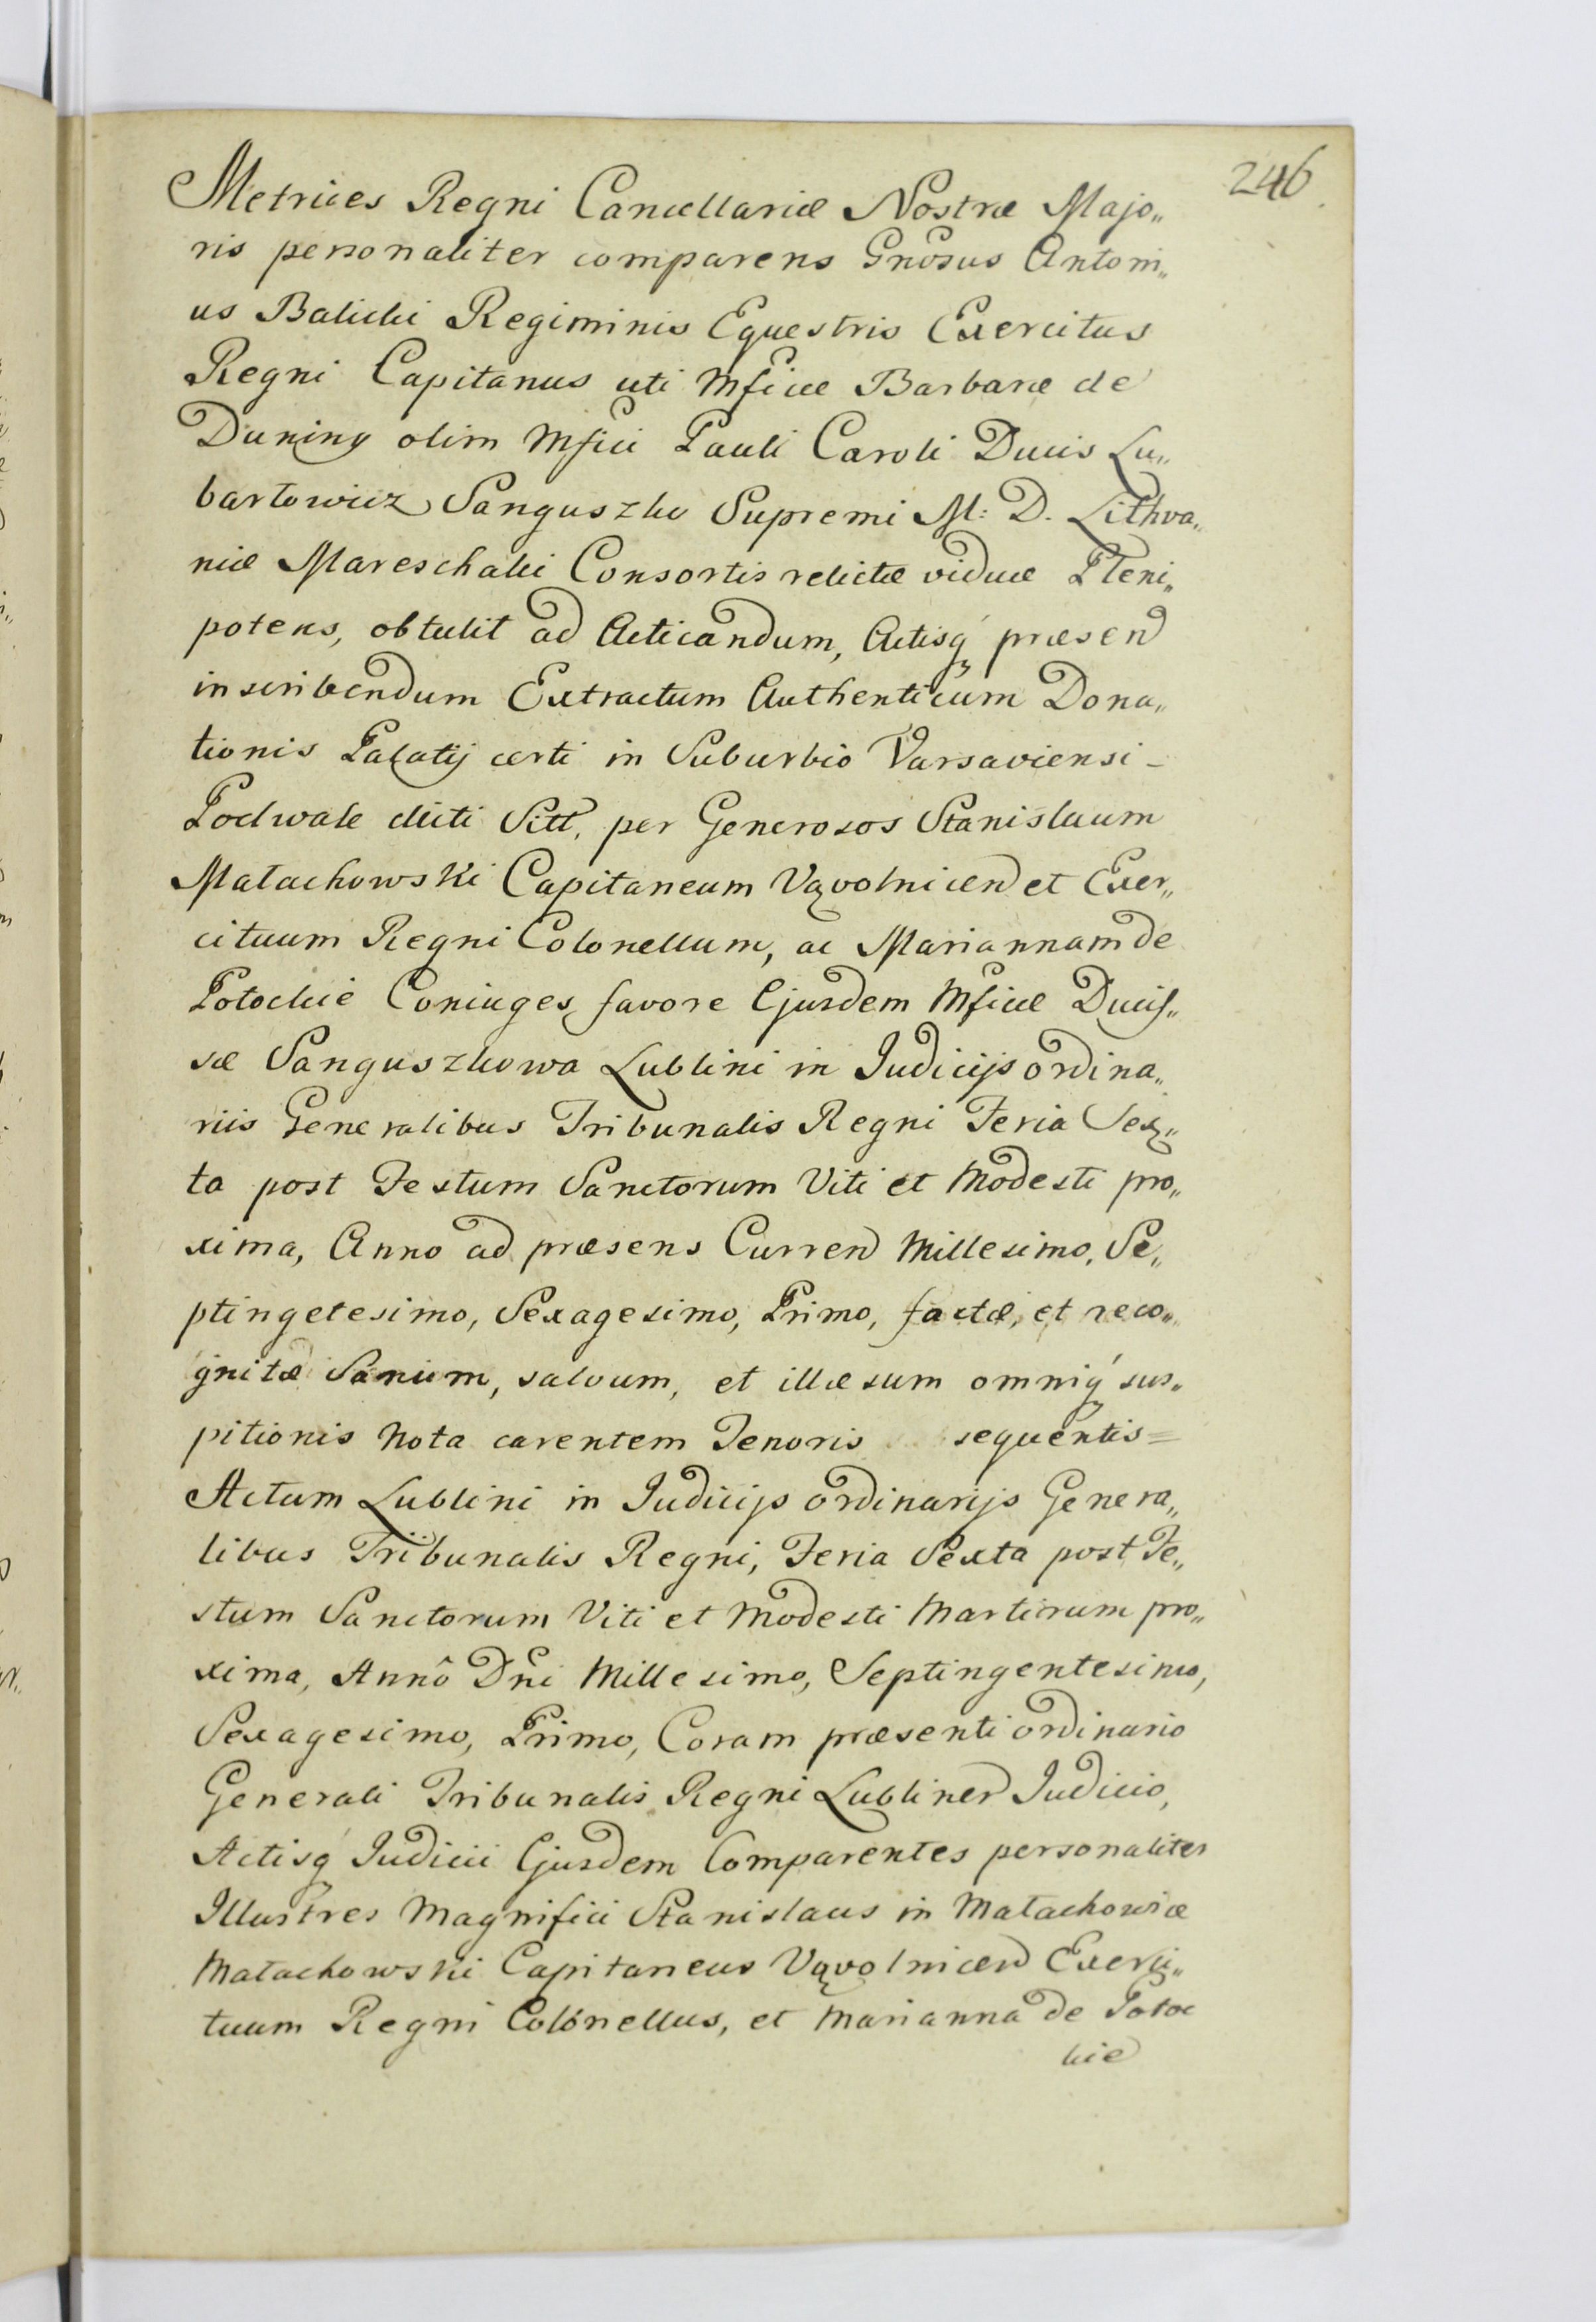 246
Metrices Regni Cancellariæ Nostræ Majo„
ris personaliter comparens Gnosus Antoni„
us Balicki Regiminis Equestris Exercitus
Regni Capitanus uti Mficæ Barbaræ de
Duniny olim Mfici Pauli Caroli Ducis Lu„
bartowicz Sanguszko Supremi M: D. Lithva„
niæ Mareschalci Consortis relictæ viduæ Pleni„
potens, obtulit ad Acticandum, Actisq́ præsen
inscribendum Extractum Authenticum Dona„
tionis Palatij certi in Suburbio Varsaviensi –
Podwale dicti Sitt, per Generosos Stanislaum
Małachowski Capitaneum Vąvolnicen et Exer„
cituum Regni Colonellum, ac Mariannam de
Potockie Coniuges favore Ejusdem Mficæ Ducis„
sæ Sanguszkowa Lublini in Judicijs ordina„
riis Generalibus Tribunalis Regni Feria Sex„
ta post Festum Sanctorum Viti et Modesti pro„
xima, Anno ad præsens Curren Millesimo, Se„
ptingetesimo, Sexagesimo, Primo, factæ, et reco„
gnitæ Sanum, salvum, et illæsum omniq́ sus„
pitionis Nota carentem Tenoris sequentis =
Actum Lublini in Judicijs ordinarijs Genera„
libus Tribunalis Regni, Feria Sexta post Fe„
stum Sanctorum Viti et Modesti Martirum pro„
xima, Annô Dni Millesimo, Septingentesimo,
Sexagesimo, Primo, Coram præsenti ordinario
Generali Tribunalis Regni Lublinen Judicio,
Actisq́ Judicii Ejusdem Comparentes personaliter
Illustres Magnifici Stanislaus in Małachowice
Małachowski Capitaneus Vąvolnicen Exerci„
tuum Regni Colonellus, et Marianna de Potoc
kie